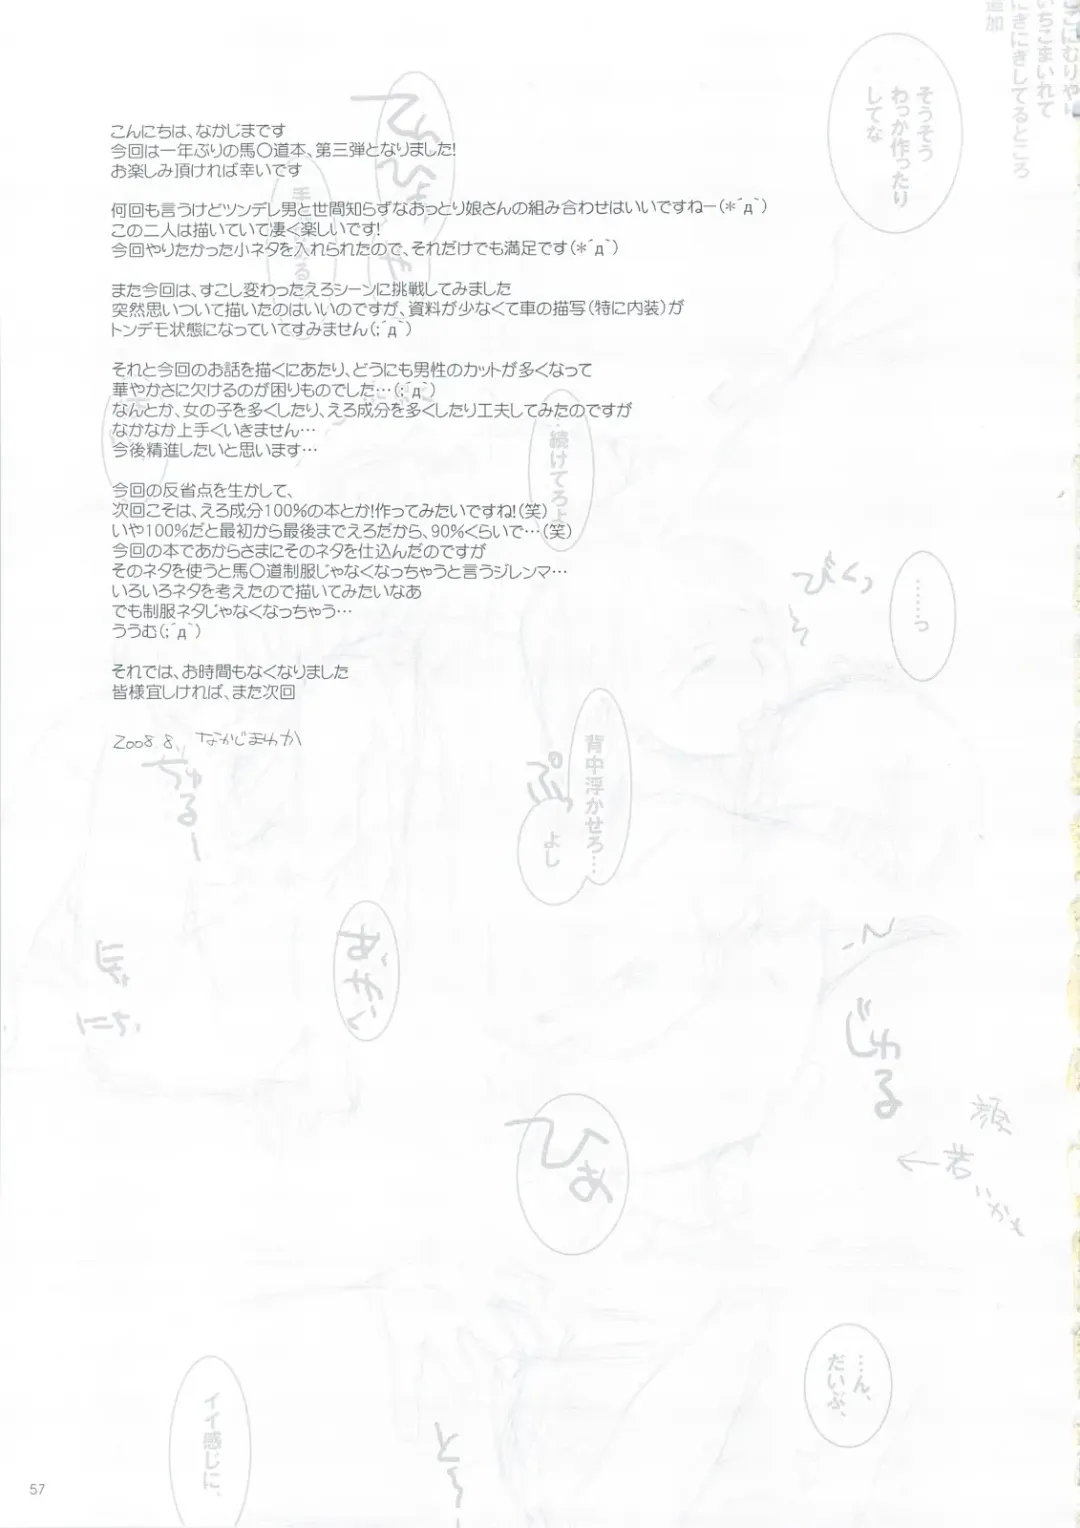 こんにちは、なかじまです
今回は一年ぶりの馬〇道本、第三弾となりました!
お楽しみ頂ければ幸いです
何回も言うけどツンデレ男と世間知らずなおっとり娘さんの組み合わせはいいですねー(*´д`)
この二人は描いていて凄く楽しいです!
今回やりたかった小ネタを入れられたので、それだけでも満足です(*´д`)
また今回は、すこし変わったえろシーンに挑戦してみました
突然思いついて描いたのはいいのですが、資料が少なくて車の描写(特に内装)が
トンデモ状態になっていてすみません(;´д`)
それと今回のお話を描くにあたり、どうにも男性のカットが多くなって
華やかさに欠けるのが困りものでした…(;´д`)
なんとか、女の子を多くしたり、えろ成分を多くしたり工夫してみたのですが
なかなか上手くいきません…
今後精進したいと思います…
今回の反省点を生かして、
次回こそは、えろ成分100%の本とか!作ってみたいですね!(笑)
いや100%だと最初から最後までえろだから、90%くらいで…(笑)
今回の本であからさまにそのネタを仕込んだのですが
そのネタを使うと馬〇道制服じゃなくなっちゃうと言うジレンマ…
いろいろネタを考えたので描いてみたいなあ
でも制服ネタじゃなくなっちゃう…
ううむ(;´д`)
それでは、お時間もなくなりました
皆様宜しければ、また次回
2008.8. なかじまゆか
ここにむりやり
いちごまいれて
にぎにぎしてるところ
追加
そうそう
わっか作ったり
してな
てんひょ
…続けてろよ
びくっ
……っ
背中浮かせろ…
よし
ぷっ
ちゅるー
じゅる
ひぁ
顔
←若
いかも
…ん、
だいぶ、
イイ感じに、
と〜
57